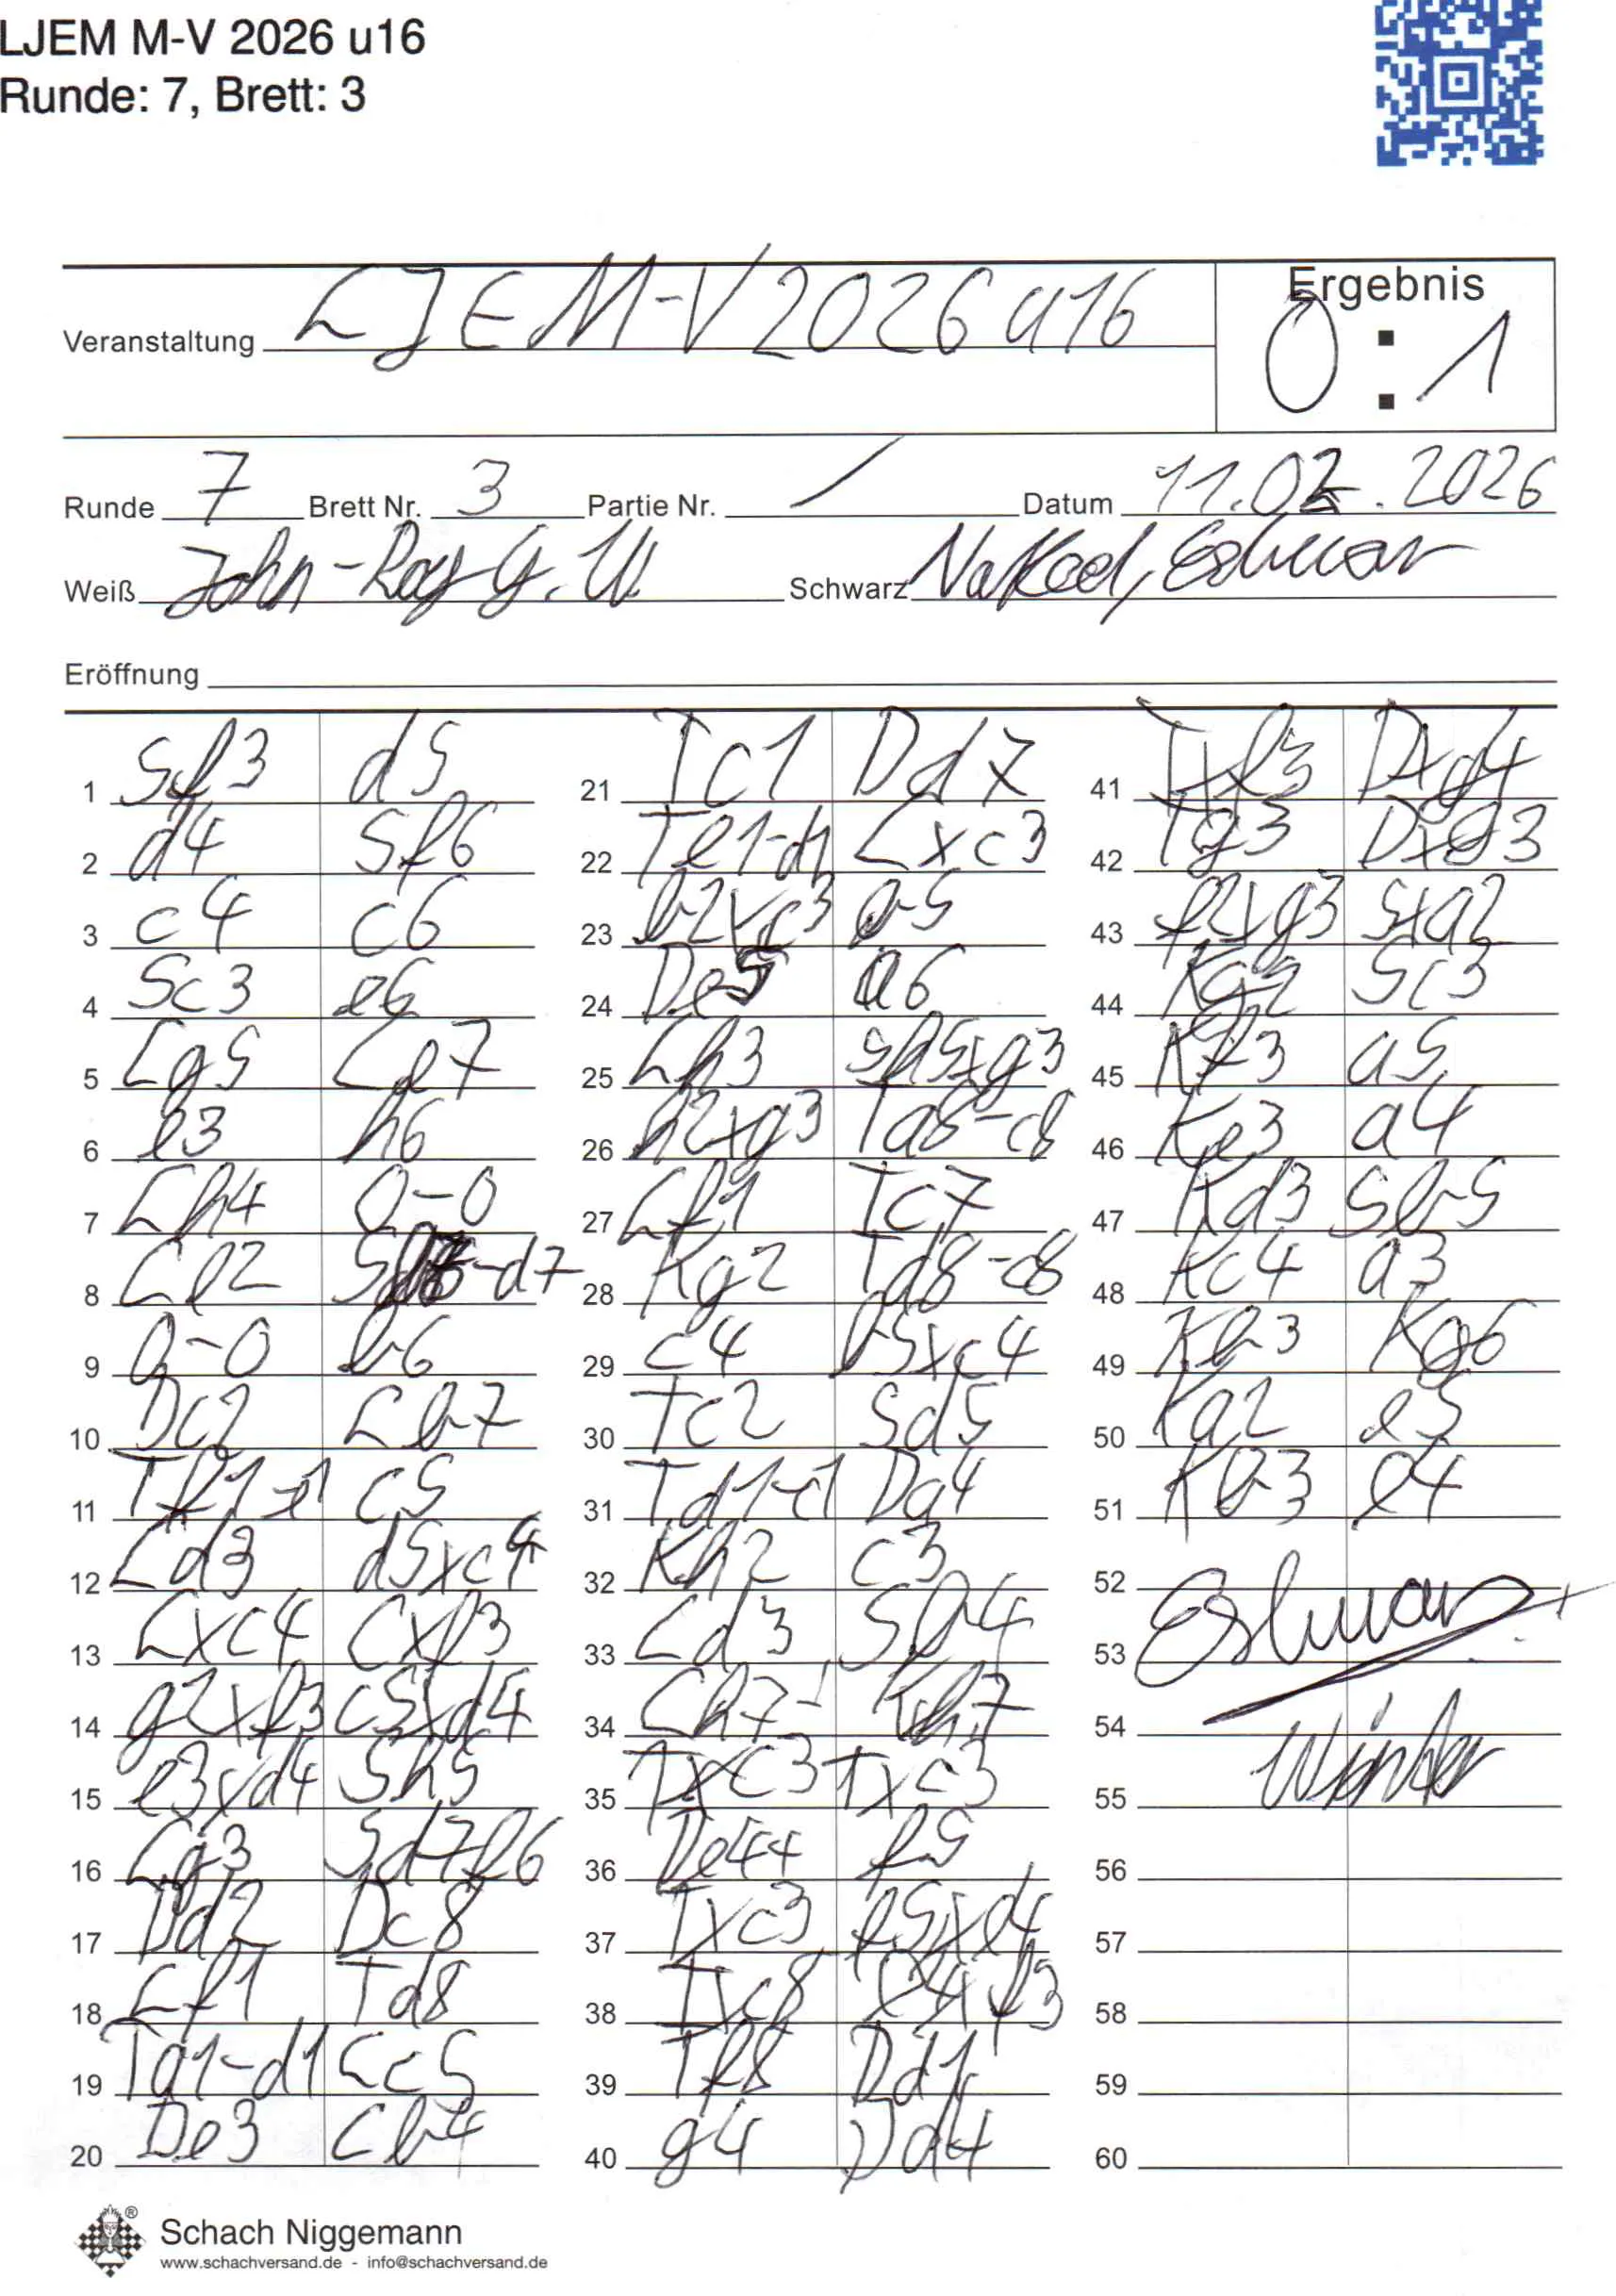 LJEM M-V 2026 u16
Runde: 7, Brett: 3
Veranstaltung LJEM M-V 2026 u16
Ergebnis
0 : 1
Runde 7 Brett Nr. 3 Partie Nr. / Datum 11.02.2026
Weiß John-Ray G. W. Schwarz Nakod, Eshwar
Eröffnung
1 Sf3 d5
2 d4 Sf6
3 c4 c6
4 Sc3 e6
5 Lg5 Le7
6 e3 h6
7 Lh4 0-0
8 Le2 -d7
9 0-0 b6
10 Dc2 Lb7
11 Tf1-e1 c5
12 Ld3 d5xc4
13 Lxc4 Lxf3
14 g2xf3 c5xd4
15 e3xd4 Sh5
16 Lg3 Sd7f6
17 Dd2 Dc8
18 Lf1 Td8
19 Ta1-d1 Lc5
20 De3 Lb4
21 Tc1 Dd7
22 Te1-d1 Lxc3
23 b2xc3 b5
24 De5 a6
25 Lh3 Sh5xg3
26 h2xg3 Ta8-c8
27 Lf1 Tc7
28 Kg2 Td8-c8
29 c4 b5xc4
30 Tc2 Sd5
31 Td1-c1 Da4
32 Kh2 c3
33 Ld3 Sb4
34 Lh7+ Kh7
35 Txc3 Txc3
36 De4+ f5
37 Txc3 f5xe4
38 Txc8 e4xf3
39 Tf8 Dd1
40 g4 Dd4
41 Txf3 Dxg4
42 Tg3 Dxg3
43 f2xg3 Sxa2
44 Kg2 Sc3
45 Kf3 a5
46 Ke3 a4
47 Kd3 Sb5
48 Kc4 a3
49 Kb3 Kg6
50 Ka2 e5
51 Kb3 e4
52
53 Eshwar
54
55 Winter
56
57
58
59
60
Schach Niggemann
www.schachversand.de - info@schachversand.de